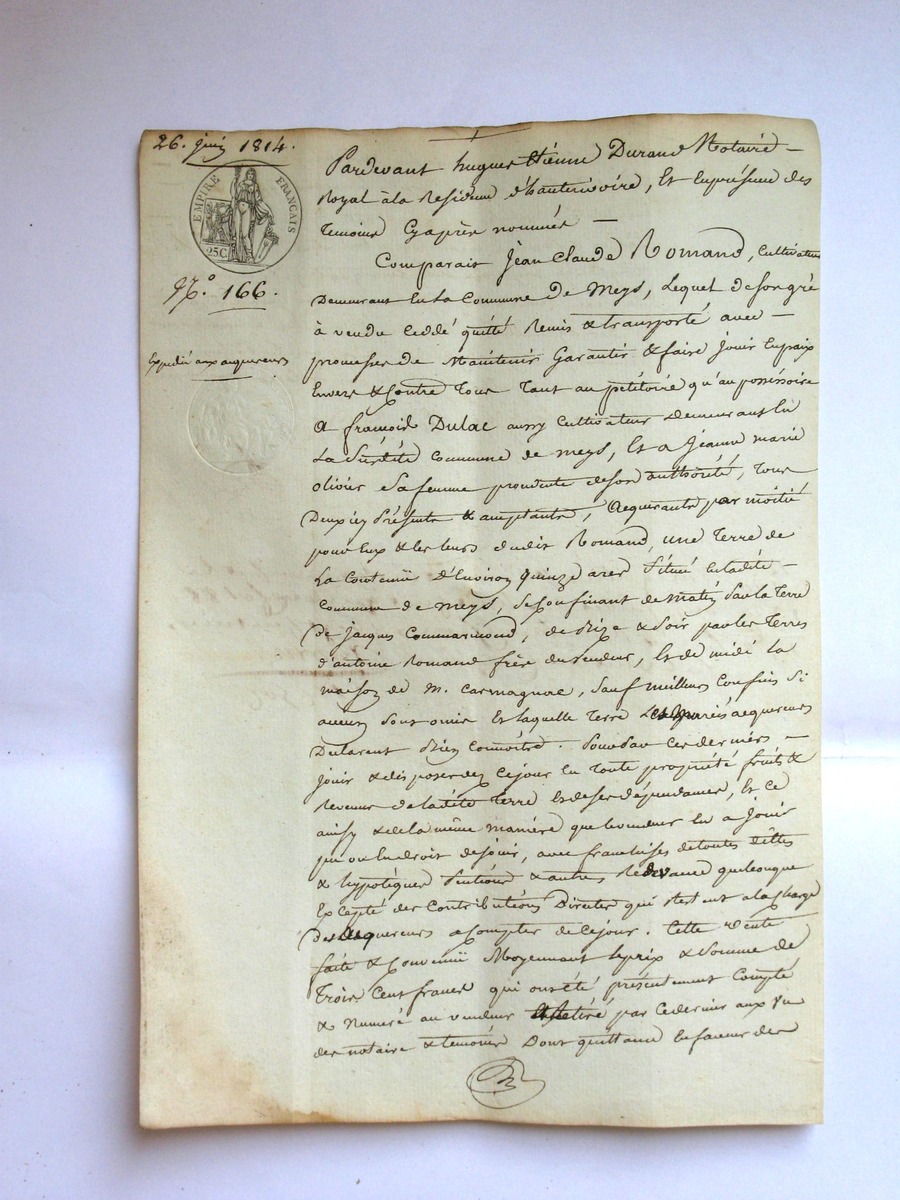 26. juin 1814.
EMPIRE FRANÇAIS
25C
N.º 166.
Expédié aux acquereurs
Pardevant hugues Etienne Durand Notaire
Royal à la Residence d'hauterivoire, Et En présence des
Temoins Cy après nommés
Comparait Jean Claude Romand, Cultivateur
Demeurant En La Commune De Meys, Lequel de son gré
à vendu Ceddé quitté Remis & transporté avec
promesse de Maintenir Garantir & faire jouir En paix
Envers & Contre Tous Tant au pétitoire qu'au possessoire
A francois Dulac aussy Cultivateur Demeurant En
La commune de meys, Et a Jeanne marie
olivier sa femme procedente de son authorité, Tous
Deux icy Présents & acceptants, Acquerants par moitié
pour Eux & les leurs dudit Romand, une Terre de
La Contenüe D'Environ Quinze ares Située En ladite
commune de Meys, se Confinant de Matin par la Terre
de jacques Commarmond, de Bize & Soir par les Terres
d'antoine Romand frère du vendeur, Et de midi la
maison de M. Carmagnac, Sauf meilleurs Confins Si
aucuns Sont omis Et laquelle Terre acquereurs
Declarent Bien Connoitre. Pour par Ces derniers
jouir & disposer dez Cejour En Toute propriété fruits &
Revenus de ladite Terre Et de ses dépendances, Et Ce
ainsy & de la même manière que le vendeur En a Joui
pu ou En droit de jouir, avec franchises de toutes dettes
& hypotèques Pentions & autres Redevance quelconque
Excepté des Contributions Directes qui Restent a la Charge
Des acquereurs a Compter de Cejour. Cette Vente
faite & Convenüe Moyennant le prix & Somme de
Trois Cent francs qui ont été présentement Compté
& Numeré au vendeur & Retiré par Ce dernier aux Vu
des notaire & temoins Dont quittance En faveur des